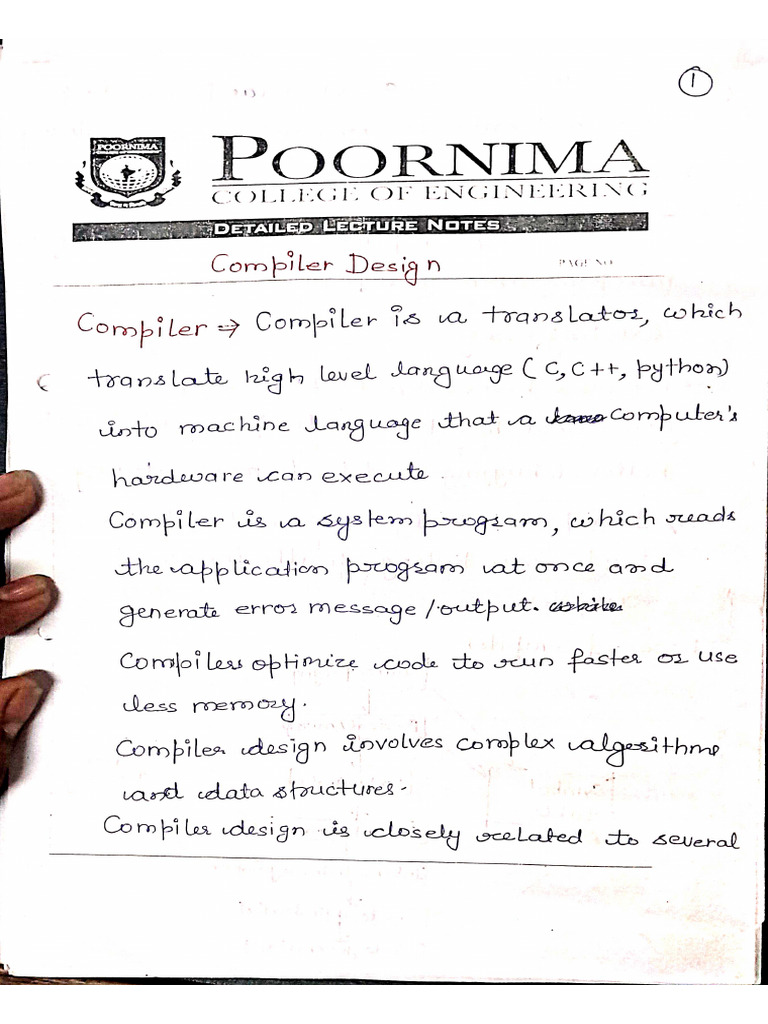 1
POORNIMA
POORNIMA
COLLEGE OF ENGINEERING
DETAILED LECTURE NOTES
Compiler Design
PAGE NO
Compiler ⇒ Compiler is a translator, which
translate high level language (C, C++, python)
into machine language that a computer's
hardware can execute.
Compiler is a system program, which reads
the application program at once and
generate error message/output.
Compilers optimize code to run faster or use
less memory.
Compiler design involves complex algorithms
and data structures.
Compiler design is closely related to several